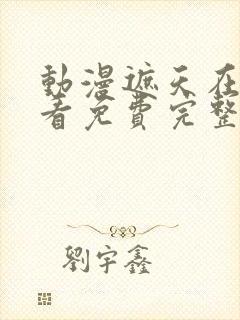 動漫遮天在
看免費完整
劉宇鑫